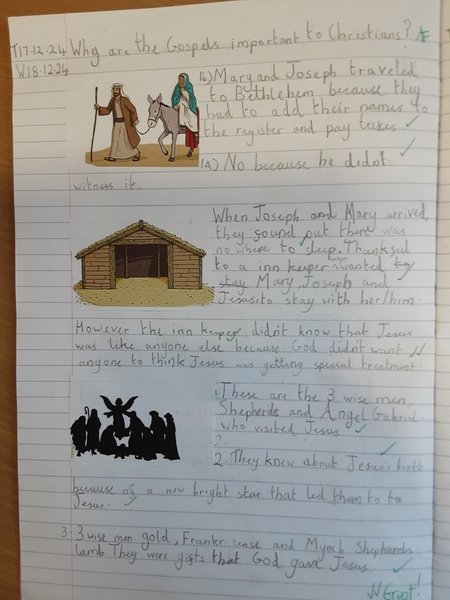 T17.12.24 Why are the Gospels important to Christians? AE
W18.12.24
1b) Mary and Joseph traveled
to Bethlehem because they
had to add their names to
the register and pay taxes
1A) No because he didn't
witness it.
When Joseph and Mary arrived
they found out there was
no where to sleep. Thankful
to a inn keeper who wanted to
stay Mary, Joseph and
Jesus to stay with her/him.
However the inn keeper didn't know that Jesus
was like anyone else because God didn't want
anyone to think Jesus was getting special treatment.
1. These are the 3 wise men,
Shepherds and Angel Gabriel
who visited Jesus
2.
2. They knew about Jesus birth
because of a new bright star that led them to to
Jesus.
3. 3 wise men gold, and Shepherds
lamb. They were gifts that God gave Jesus.
Great!